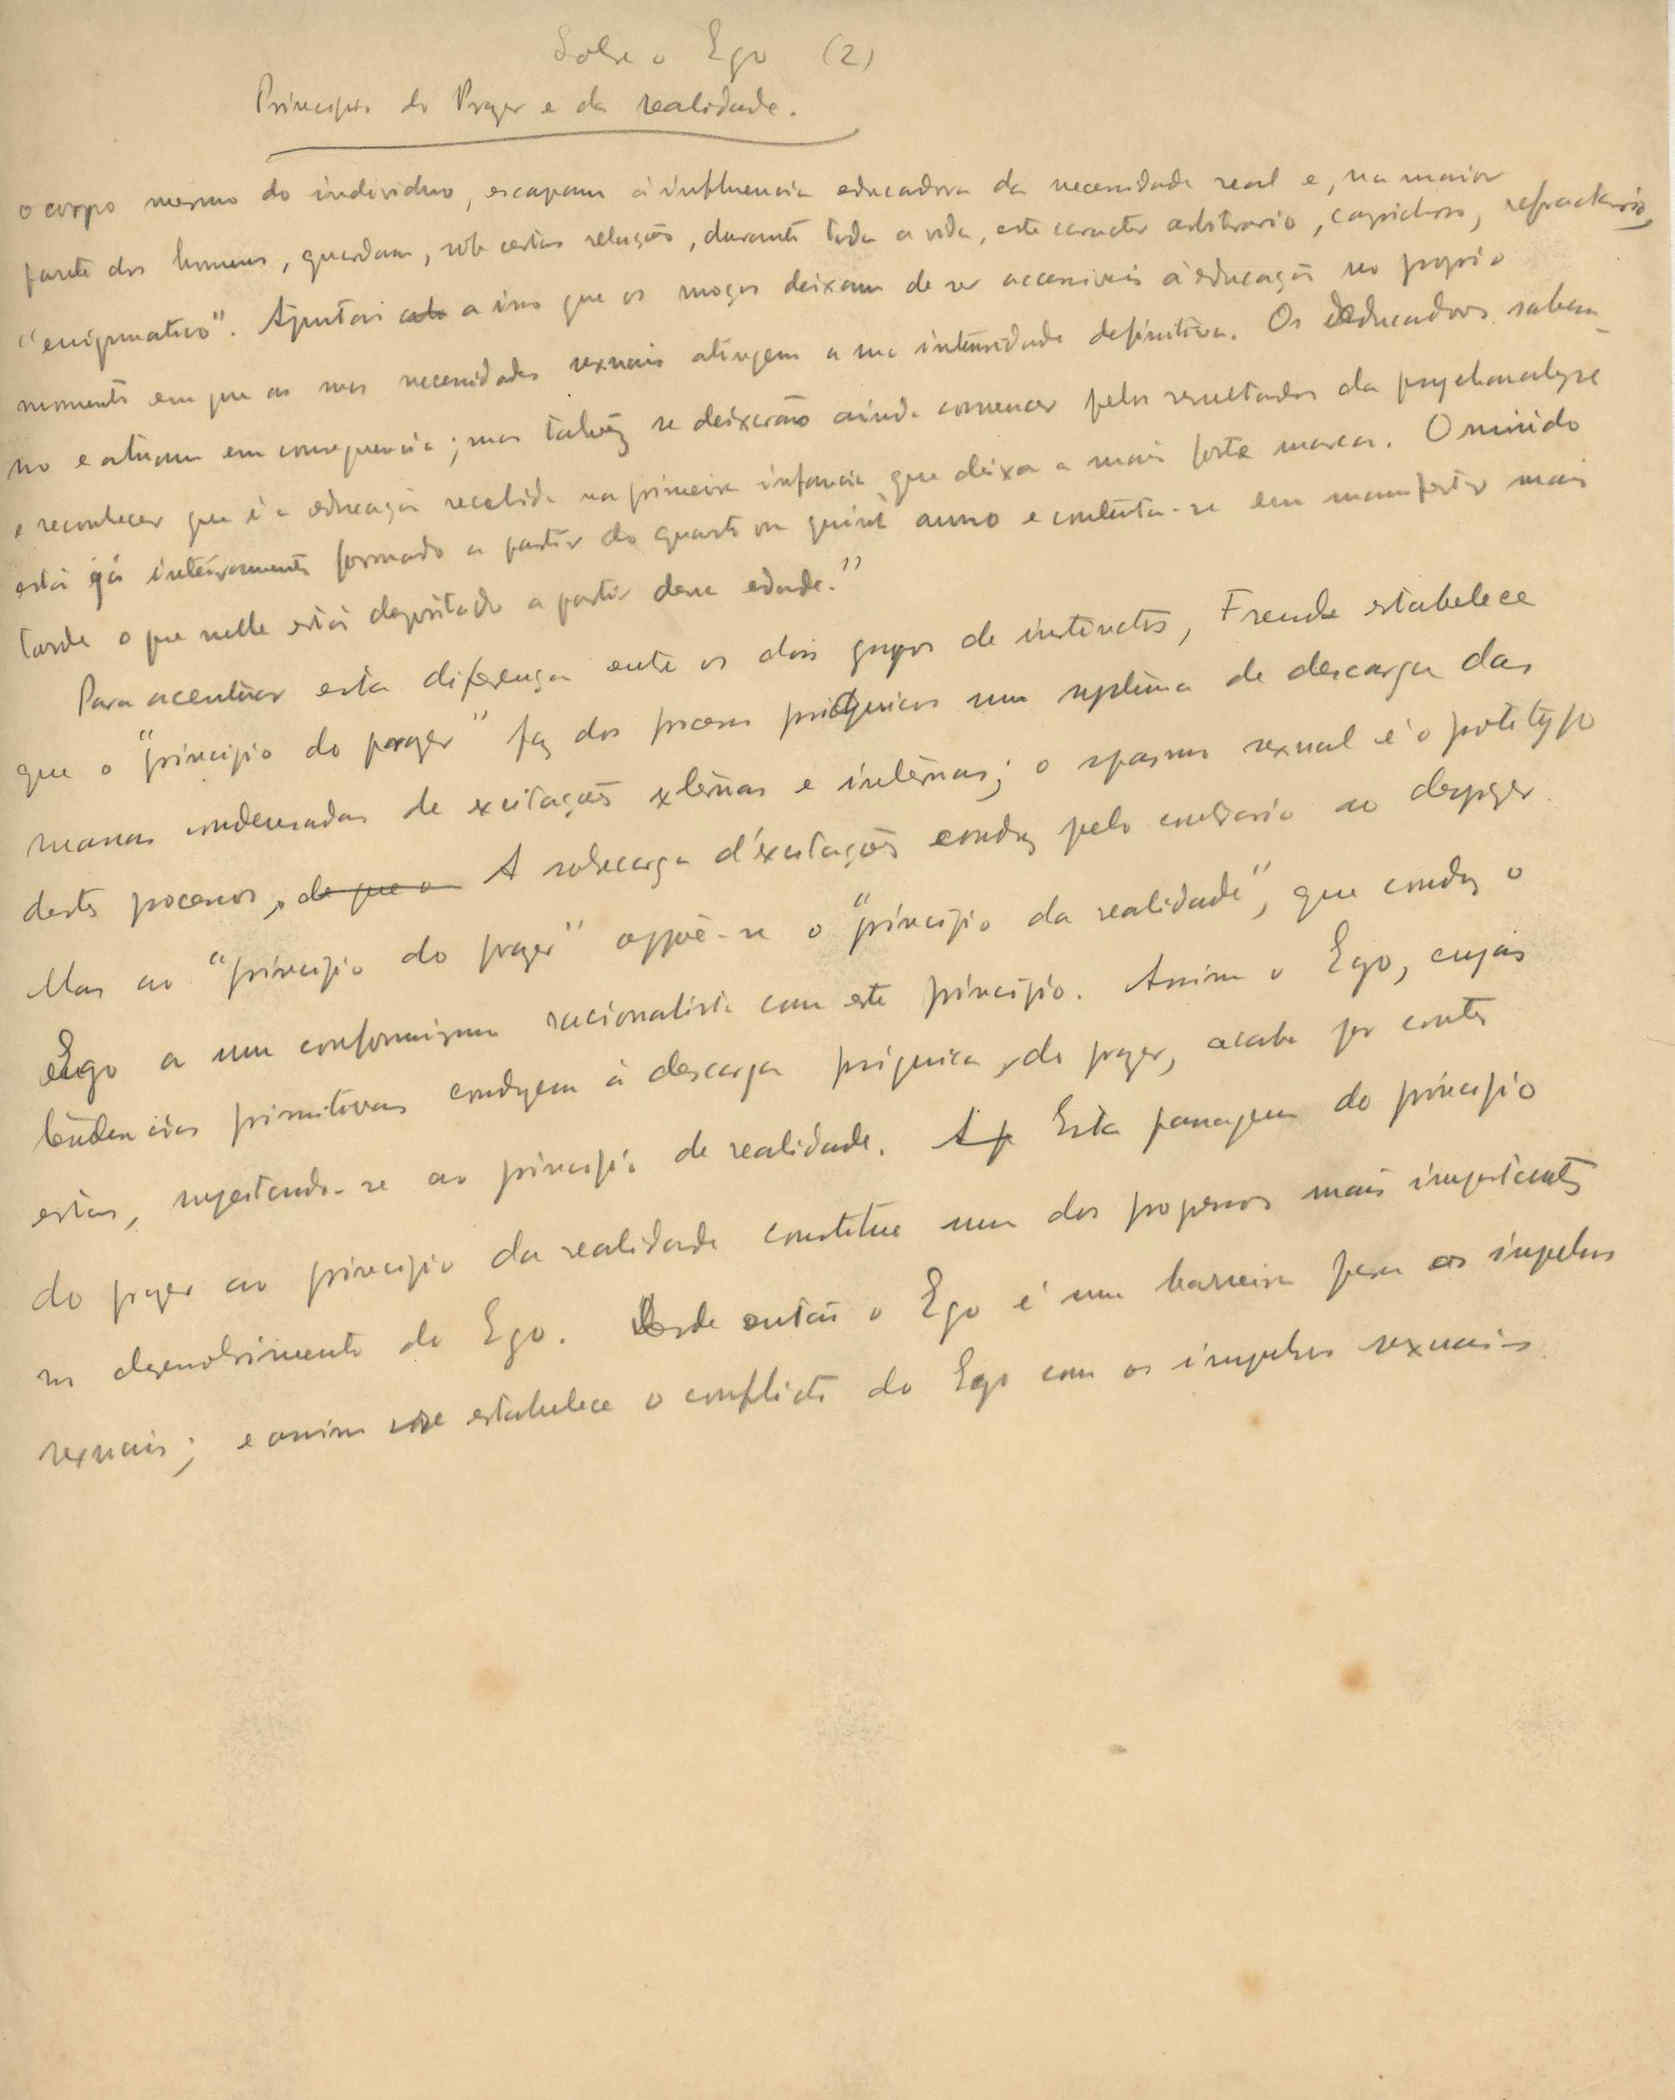 Sobre o Ego (2)
Principios do Prazer e da realidade.
o corpo mesmo do individuo, escapam á influencia educadora da necessidade real e, na maior
parte dos homens, guardam, sob certas relações, durante toda a vida, este caracter arbitrario, caprichoso, refractario,
"enigmatico". Ajuntai a isso que os moços deixam de ser accessiveis á educação no proprio
momento em que as suas necessidades sexuais atingem a sua intensidade definitiva. Os educadores sabem-
no e atuam em consequencia; mas talvez se deixarão ainda convencer pelos resultados da psychanalyse
e reconhecer que é a educação recebida na primeira infancia que deixa a mais forte marca. O
está já inteiramente formado a partir do quarto ou quinto anno e contenta-se em manifestar mais
tarde o que nelle está depositado a partir dessa edade."
Para acentuar esta diferença entre os dois grupos de instinctos, Freud estabelece
que o "principio do prazer" faz dos processos psiquicos um systema de descarga das
massas condensadas de excitações externas e internas; o espasmo sexual é o prototypo
destes processos, de que o A sobrecarga d'excitações conduz pelo contrario ao desprazer.
Mas ao "principio do prazer" oppõe-se o "principio da realidade", que conduz o
Ego a um conformismo racionalista com este principio. Assim o Ego, cujas
tendencias primitivas conduzem á descarga psiquica, do prazer, acaba por conter
estas, sujeitando-se ao principio de realidade. Esta passagem do principio
do prazer ao principio da realidade constitue um dos progressos mais importantes
no desenvolvimento do Ego. Desde então o Ego é uma barreira para os impulsos
sexuais; e assim se estabelece o conflicto do Ego com os impulsos sexuais.